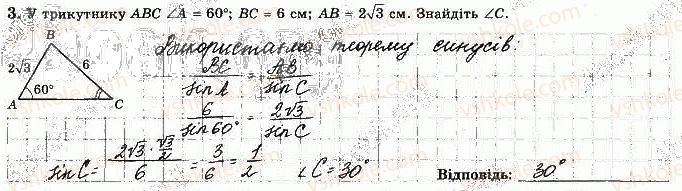 3. У трикутнику ABC ∠A = 60°; BC = 6 см; AB = 2√3 см. Знайдіть ∠C.
Використаємо теорему синусів:
B
2√3 6
60°
A C
BC/sinA = AB/sinC
6/sin60° = 2√3/sinC
sinC = (2√3 · √3/2)/6 = 3/6 = 1/2 ∠C = 30°
Відповідь: 30°